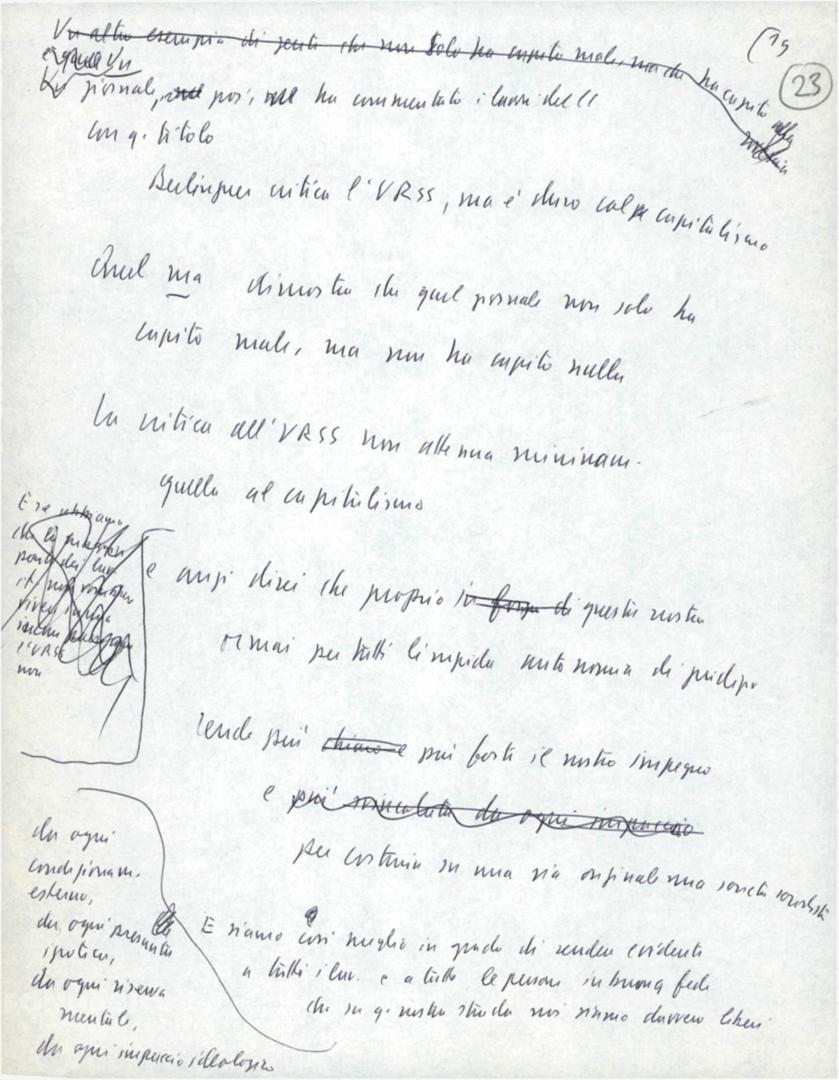 (19
23
Un altro esempio di gente che non solo ha capito male, ma che ha capito
Un giornale, poi, ha commentato i lavori del
con q. titolo
Berlinguer critica l'URSS, ma è duro col capitalismo
Quel ma dimostra che quel giornale non solo ha
capito male, ma non ha capito nulla
La critica all'URSS non attenua minimam.
quella al capitalismo
e anzi direi che proprio in di questa nostra
ormai per tutti limpida autonomia di giudizio
rende più chiaro e più forte il nostro impegno
e più svincolata da ogni impaccio
per costruire su una via originale una società socialista
E siamo così meglio in grado di rendere evidente
a tutti i lav. e a tutte le persone in buona fede
che su q. nostra strada noi siamo davvero liberi
da ogni
condizionam.
esterno,
da ogni
ipoteca,
da ogni riserva
mentale,
da ogni impaccio ideologico
E se
l'URSS
non